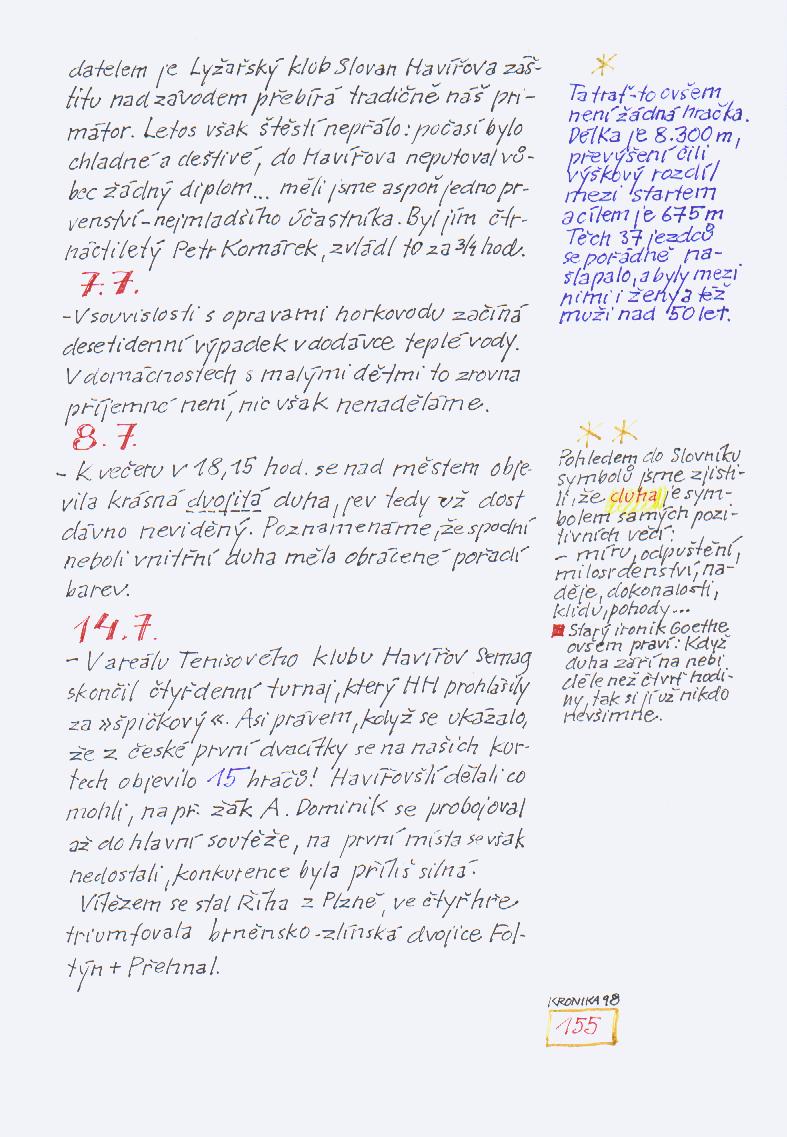 datelem je Lyžařský klub Slovan Havířova záš-
titu nad závodem přebírá tradičně náš pri-
mátor. Letos však štěstí nepřálo: počasí bylo
chladné a deštivé, do Havířova neputoval vů-
bec žádný diplom... měli jsme aspoň jedno pr-
venství - nejmladšího účastníka. Byl jím čtr-
náctiletý Petr Komárek, zvládl to za 3/4 hod.
7.7.
- V souvislosti s opravami horkovodu začíná
desetidenní výpadek v dodávce teplé vody.
V domácnostech s malými dětmi to zrovna
příjemné není, nic však nenaděláme.
8.7.
- K večeru v 18,15 hod. se nad městem obje-
vila krásná dvojitá duha, jev tedy už dost
dávno neviděný. Poznamenáme, že spodní
neboli vnitřní duha měla obrácené pořadí
barev.
14.7.
- V areálu Tenisového klubu Havířov Semag
skončil čtyřdenní turnaj, který HH prohlásily
za »špičkový«. Asi právem, když se ukázalo,
že z české první dvacítky se na našich kur-
tech objevilo 15 hráčů! Havířovští dělali co
mohli, např. žák A. Dominik se probojoval
až do hlavní soutěže, na první místa se však
nedostali, konkurence byla příliš silná.
Vítězem se stal Říha z Plzně, ve čtyřhře
triumfovala brněnsko-zlínská dvojice Fol-
týn + Přehnal.
*
Ta trať - to ovšem
není žádná hračka.
Délka je 8.300 m,
převýšení čili
výškový rozdíl
mezi startem
a cílem je 675 m
Těch 37 jezdců
se pořádně na-
šlapalo, a byly mezi
nimi i ženy a též
muži nad 50 let.
* *
Pohledem do Slovníku
symbolů jsme zjisti-
li, že duha je sym-
bolem samých pozi-
tivních věcí:
- míru, odpuštění,
milosrdenství, na-
děje, dokonalosti,
klidu, pohody...
Starý ironik Goethe
ovšem praví: Když
duha září na nebi
déle než čtvrt hodi-
ny, tak si jí už nikdo
nevšimne.
KRONIKA 98
155